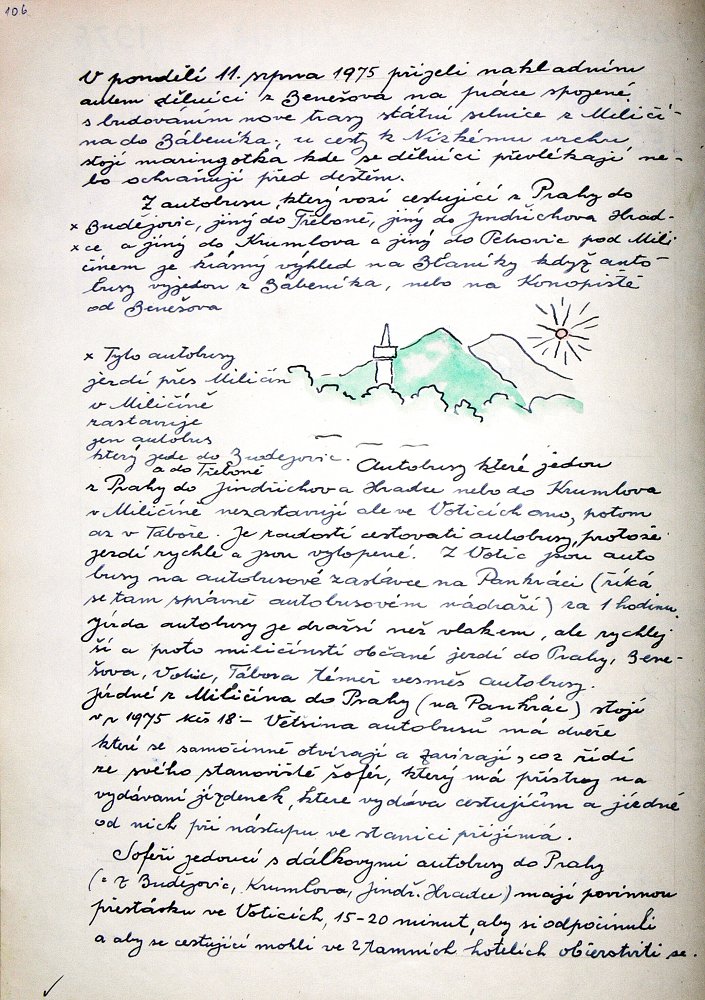 106
V pondělí 11. srpna 1975 přijeli nákladním
autem dělníci z Benešova na práce spojené
s budováním nové trasy státní silnice z Miličí-
na do Bábeníka, u cesty k Nízkému vrchu
stojí maringotka kde se dělníci převlékají ne-
bo ochraňují před deštěm.
Z autobusu, který vozí cestující z Prahy do
x Budějovic, jiný do Třeboně, jiný do Jindřichova Hrad-
x ce a jiný do Krumlova a jiný do Pchovic pod Mili
čínem je krásný výhled na Blaníky když auto-
busy vyjedou z Bábeníka, nebo na Konopiště
od Benešova
x Tyto autobusy
jezdí přes Miličín
v Miličíně
zastavuje
jen autobus
který jede do Budějovic.
a do Třeboně
Autobusy které jedou
z Prahy do Jindřichova Hradce nebo do Krumlova
v Miličíně nezastavují ale ve Voticích ano, potom
až v Táboře. Je radostí cestovati autobusy, protože
jezdí rychle a jsou vytopené. Z Votic jsou auto
busy na autobusové zastávce na Pankráci (říká
se tam správně autobusovém nádraží) za 1 hodinu.
Jízda autobusy je dražší než vlakem, ale rychlej
ší a proto miličínští občané jezdí do Prahy, Bene-
šova, Votic, Tábora téměř vesměs autobusy.
Jízdné z Miličína do Prahy (na Pankrác) stojí
v r 1975 Kčs 18·– Většina autobusů má dveře
které se samočinně otvírají a zavírají, což řídí
ze svého stanoviště šofér, který má přístroj na
vydávaní jízdenek, ktere vydává cestujícím a jízdné
od nich při nástupu ve stanici přijímá.
Šoféři jedoucí s dálkovými autobusy do Prahy
(z Budějovic, Krumlova, Jindř. Hradce) mají povinnou
přestávku ve Voticích, 15-20 minut, aby si odpočinuli
a aby se cestující mohli ve 2 tamních hotelích občerstviti se.